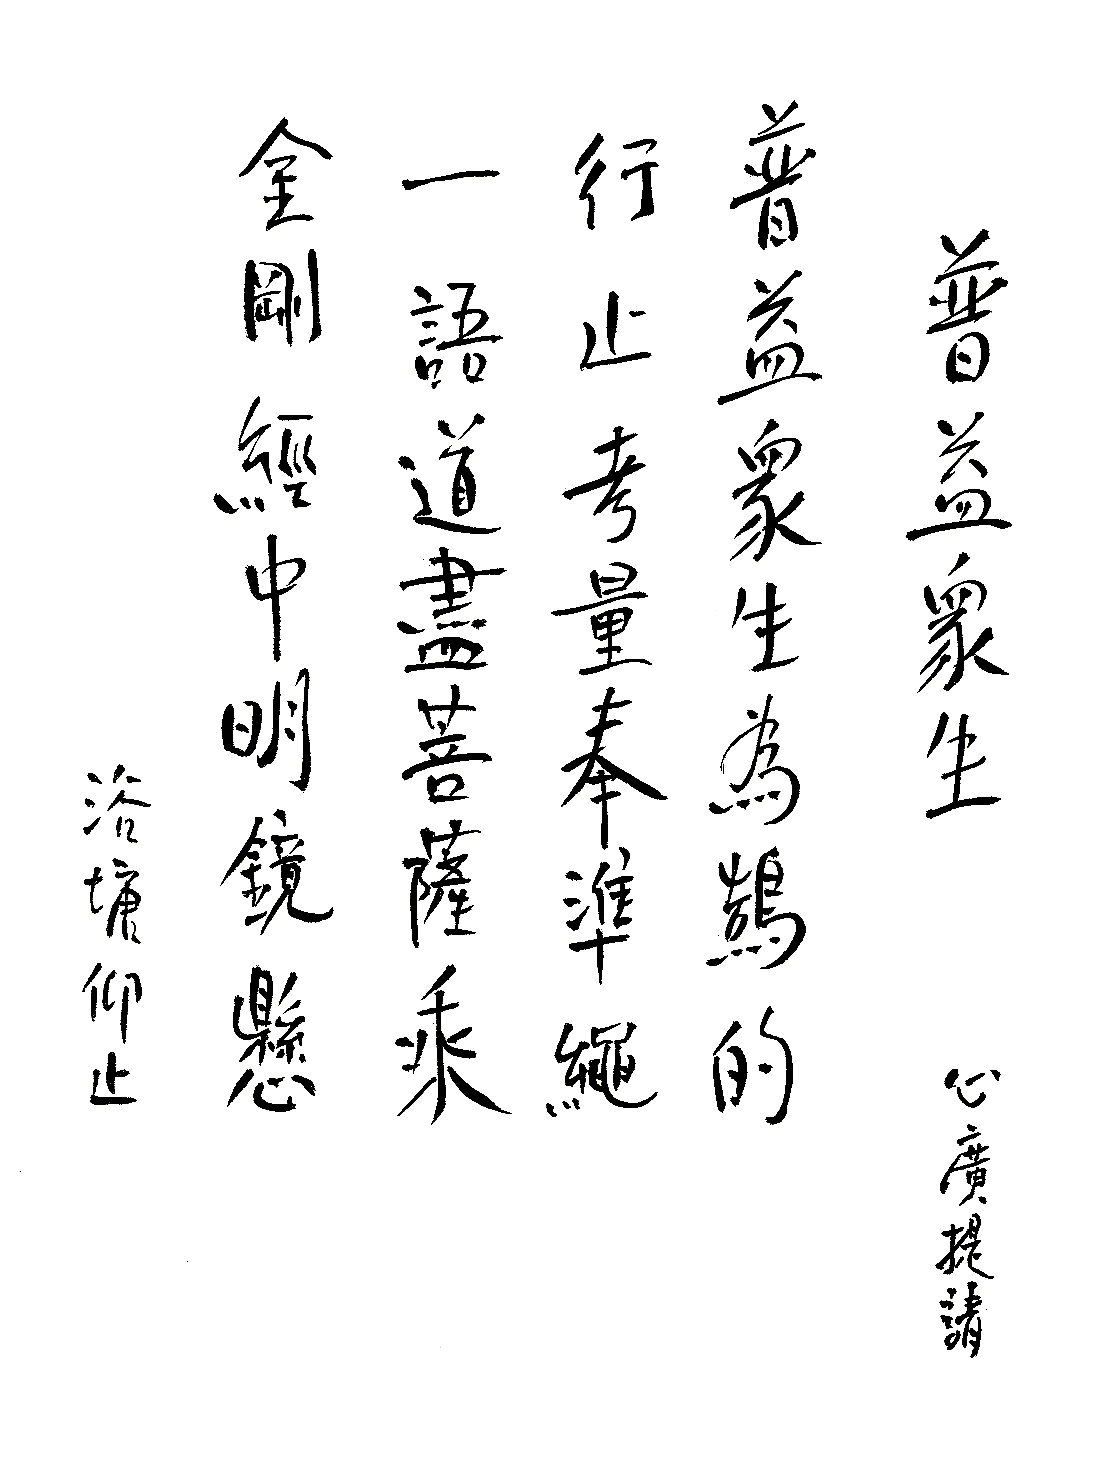 普益眾生　心廣提請
普益眾生為鵠的
行止考量奉準繩
一語道盡菩薩乘
金剛經中明鏡懸
浴墉仰止